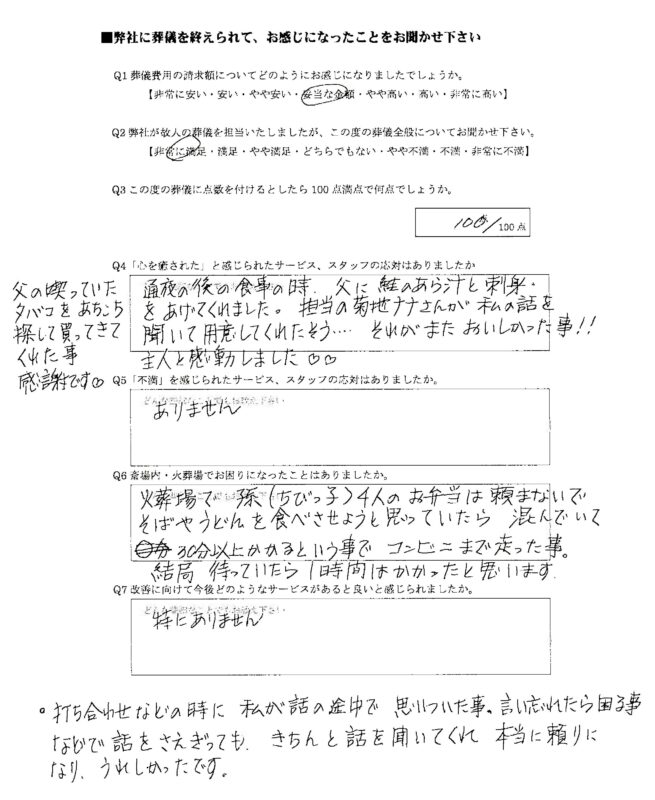 ■弊社に葬儀を終えられて、お感じになったことをお聞かせ下さい
Q1 葬儀費用の請求額についてどのようにお感じになりましたでしょうか。
【非常に安い・安い・やや安い・妥当な金額・やや高い・高い・非常に高い】
Q2 弊社が故人の葬儀を担当いたしましたが、この度の葬儀全般についてお聞かせ下さい。
【非常に満足・満足・やや満足・どちらでもない・やや不満・不満・非常に不満】
Q3 この度の葬儀に点数を付けるとしたら100点満点で何点でしょうか。
100点/100点
Q4「心を癒された」と感じられたサービス、スタッフの応対はありましたか
通夜の後の食事の時、父に鮭のあら汁と刺身・
をあげてくれました。担当の菊地ナナさんが私の話を
聞いて用意してくれたそう…. それがまたおいしかった事!!
主人と感動しました♡♡
父の喫っていた
タバコをあちこち
探して買ってきて
くれた事
感謝です♡
Q5「不満」を感じられたサービス、スタッフの応対はありましたか。
ありません
Q6 斎場内・火葬場でお困りになったことはありましたか。
火葬場で 孫(ちびっ子)4人のお弁当は頼まないで
そばやうどんを食べさせようと思っていたら 混んでいて
30分以上かかるという事で コンビニまで走った事。
結局 待っていたら1時間はかかったと思います.
Q7 改善に向けて今後どのようなサービスがあると良いと感じられましたか。
特にありません
。打ち合わせなどの時に 私が話の途中で 思いついた事、言い忘れたら困る事
などで話をさえぎっても、きちんと話を聞いてくれ 本当に頼りに
なり、うれしかったです。